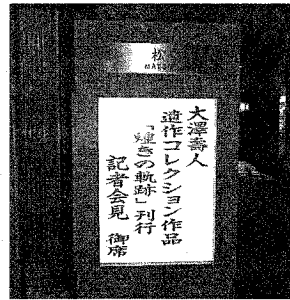 松
大澤壽人
遺作コレクション作品
「煌きの軌跡」刊行
記者会見 御席